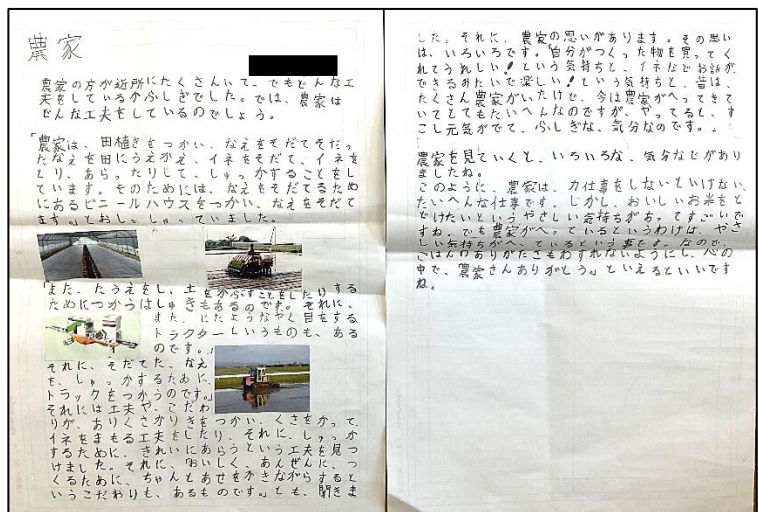 農家
農家の方が近所にたくさんいて、でもどんな工
夫をしているかふしぎでした。では、農家は
どんな工夫をしているのでしょう。
「農家は、田植きをつかい、なえをそだてそだっ
たなえを田にうえかえ、イネをそだて、イネを
とり、あらったりして、しゅっかすることをし
ています。そのためには、なえをそだてるため
にあるビニールハウスをつかい、なえをそだて
ます。」とおしっしゃっていました。
「また、たうえをし、土をかぶすことをしたりする
ためにつかうはしゅきもあるのです。それに、
また、にたようなやく目をする
トラクターというものも、ある
のです。」
それに、そだてた、なえ
を、しゅっかするために、
トラックをつかうのです。」
それには工夫や、こだわ
りが、ありくさかりきをつかい、くさをかって、
イネをまもる工夫をしたり、それに、しゅっか
するために、きれいにあらうという工夫を見つ
けました。それに、おいしく、あんぜんに、つ
くるために、ちゃんとあせをかきながらすると
いうこだわりも、あるものです。」とも、聞きま
した。それに、農家の思いがあります。その思い
は、いろいろです。「自分がつくった物を買ってく
れてうれしい!という気持ちと、イネなどお話が
できるみたいで楽しい!という気持ちと、昔は、
たくさん農家がいたけど、今は農家がへってきて
いてとてもたいへんなのですが、やってると、す
こし元気がでて、ふしぎな、気分なのです。」
農家を見ていくと、いろいろな、気分などがあり
ましたね。
このように、農家は、力仕事をしないといけない、
たいへんな仕事です。しかし、おいしいお米をと
どけたいというやさしい気持ちがあってすごいで
すね。でも農家がへっているというわけは、やさ
しい気持ちがへっているという事です。なので、
ごはんのありがたさもわすれないようにし、心の
中で、農家さんありがとう。」といえるといいです
ね。